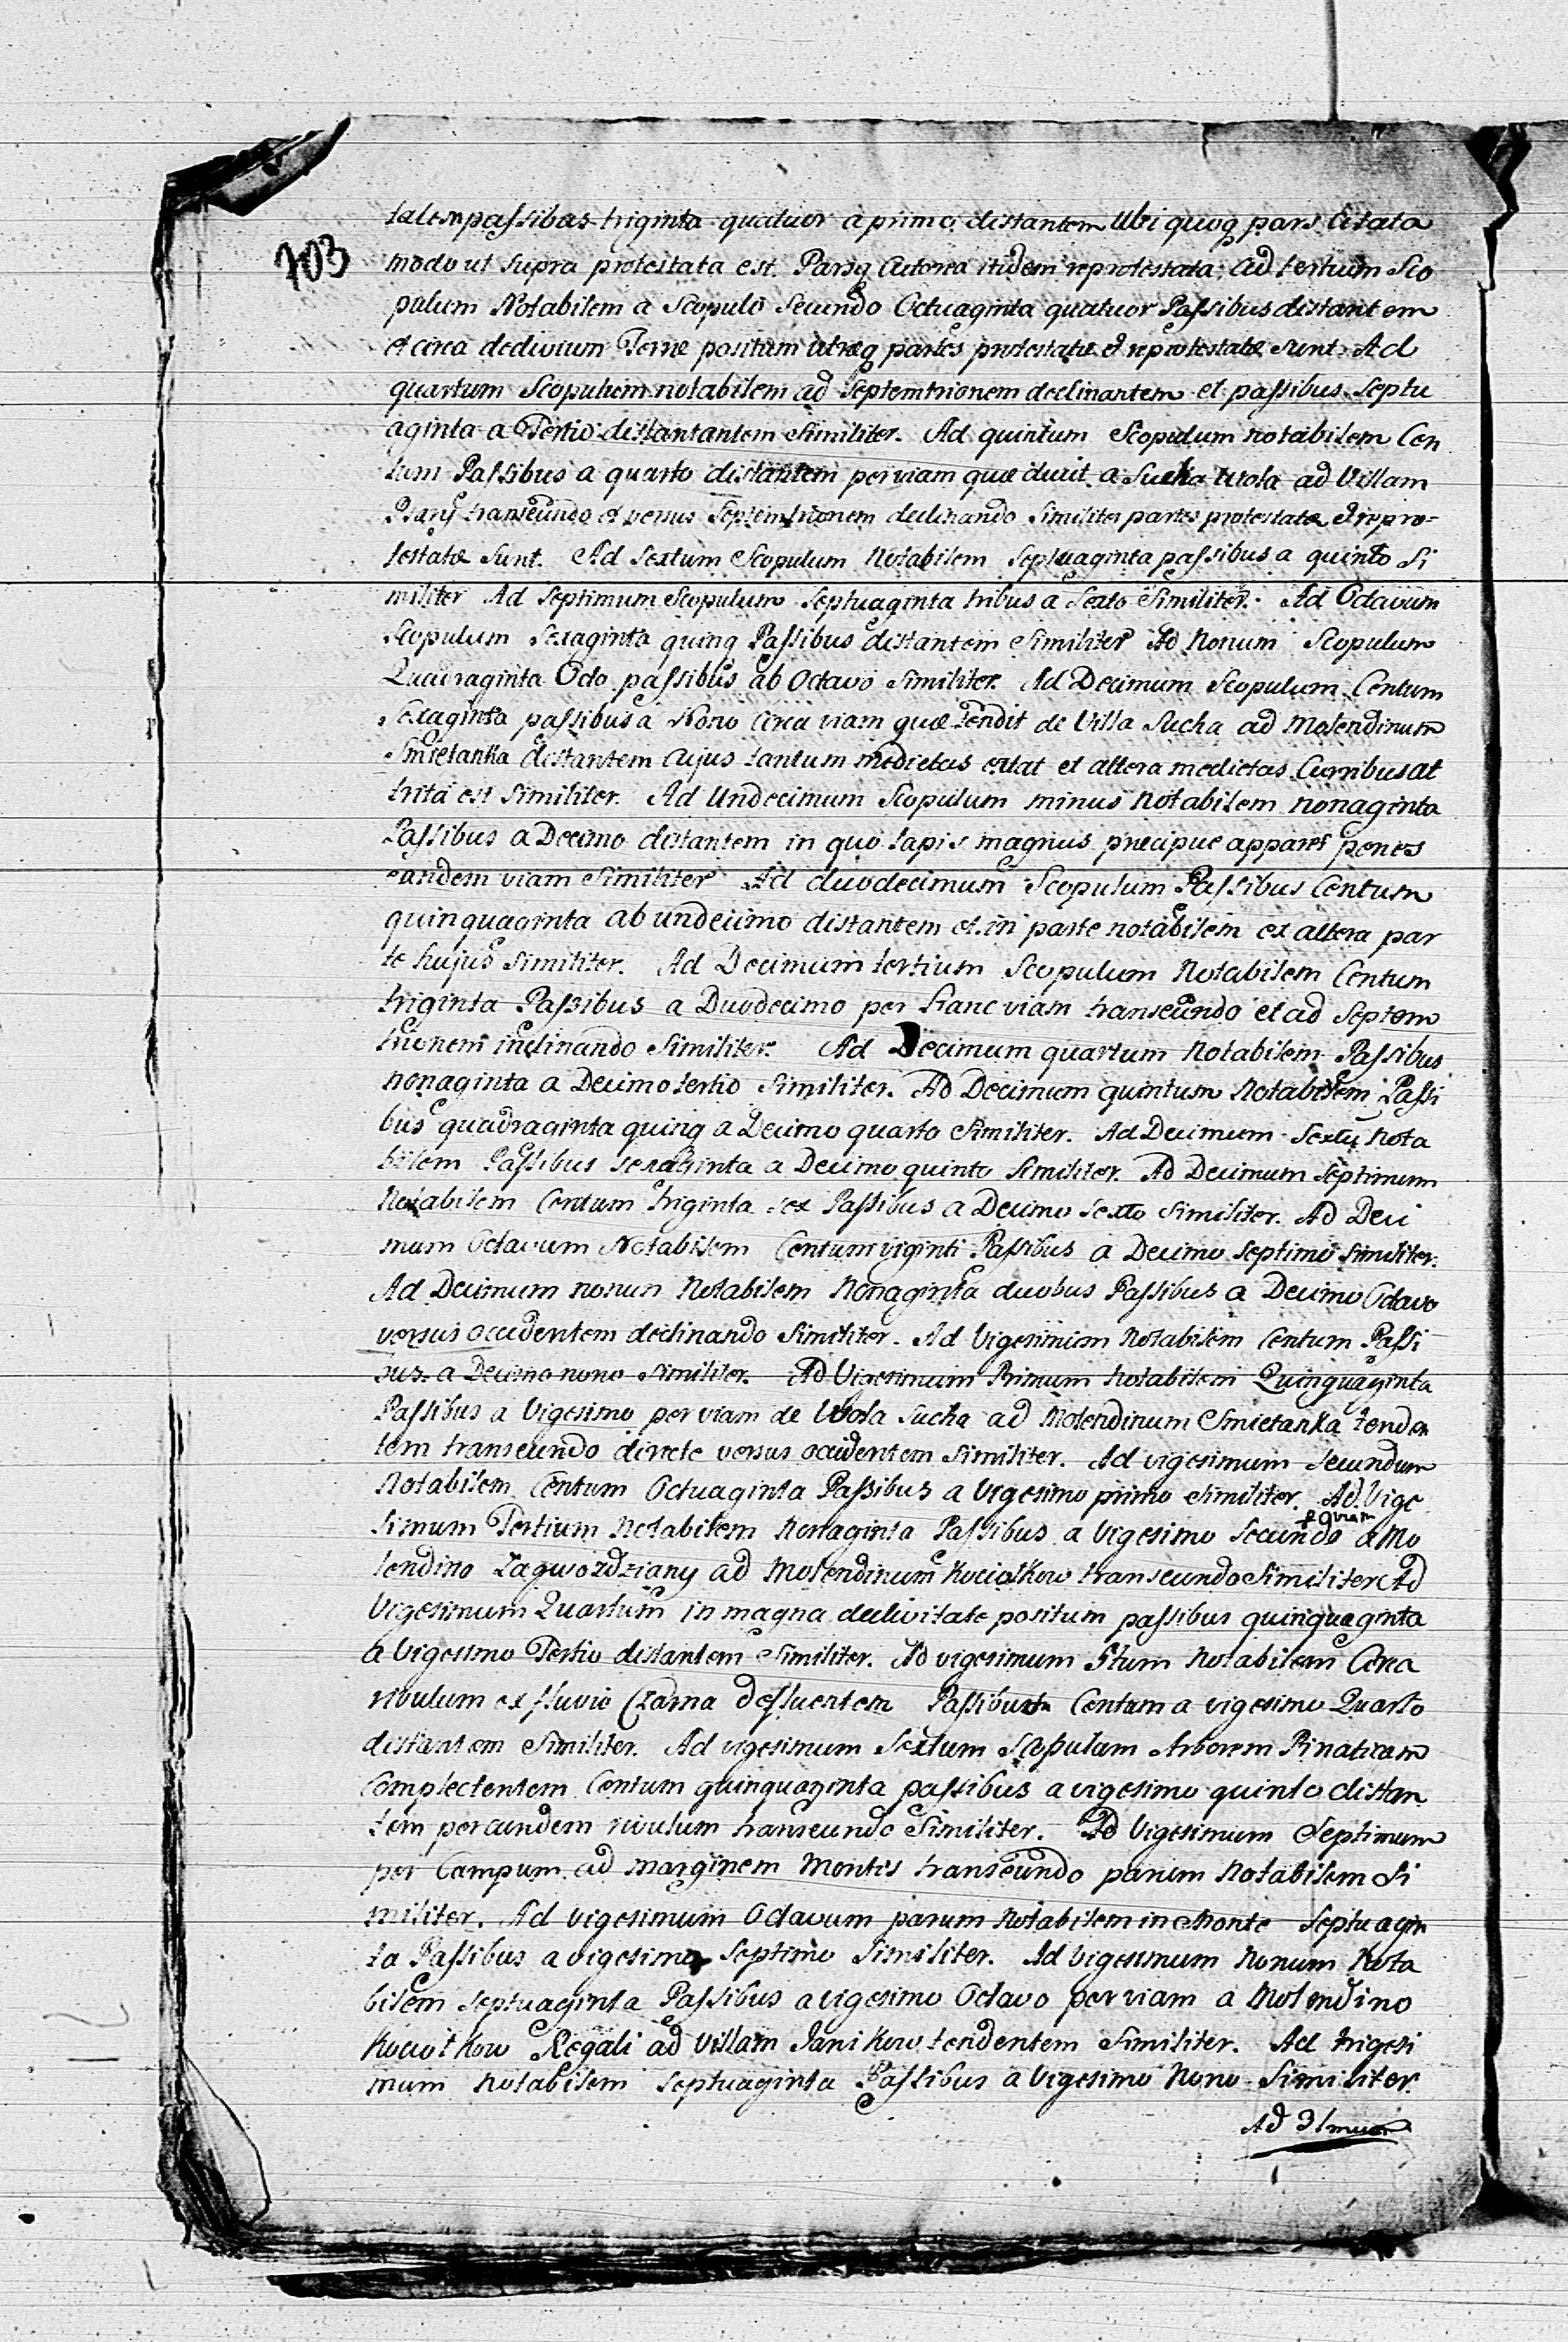 703
talem passibus triginta quatuor a primo distantem Ubi quoq pars Citata
modo ut supra protestata est. Parsq Actorea itidem reprotestata; Ad tertium Sco
pulum Notabilem a Scopulo Secundo Octuaginta quatuor Passibus distantem
et circa declivium Terræ positum utræq partes protestatæ et reprotestatæ sunt. Ad
quartum Scopulum notabilem ad Septemtrionem declinantem et passibus Septu
aginta a Tertio distantantem Similiter. Ad quintum Scopulum notabilem Cen
tum Passibus a quarto distantem per viam quæ ducit a Sucha Wola ad Villam
transeundo et versus Septemtrionem declinando Similiter partes protestatæ et repro=
testatæ sunt. Ad Sextum Scopulum Notabilem Septuaginta passibus a quinto Si
militer Ad Septimum Scopulum Septuaginta tribus a Sexto Similiter. Ad Octavum
Scopulum Sexaginta quinq Passibus distantem Similiter Ad Nonum Scopulum
Quadraginta Octo passibus ab Octavo Similiter. Ad Decimum Scopulum Centum
Sexaginta passibus a Nono Circa viam quæ tendit de Villa Sucha ad Molendinum
Smietanka distantem cujus tantum medietas extat et altera medietas Curribus at
trita est Similiter. Ad Undecimum Scopulum minus Notabilem nonaginta
Passibus a Decimo distantem in quo lapis magnus præcipue apparet penes
eandem viam Similiter Ad duodecimum Scopulum Passibus Centum
quinquaginta ab undecimo distantem et in parte notabilem ex altera par
te hujus Similiter. Ad Decimum tertium Scopulum Notabilem Centum
triginta Passibus a Duodecimo per hanc viam transeundo et ad Septem
trionem inclinando Similiter. Ad Decimum quartum Notabilem Passibus
nonaginta a Decimo tertio Similiter. Ad Decimum quintum Notabilem Passi
bus quadraginta quinq a Decimo quarto Similiter. Ad Decimum Sextũ Nota
bilem Passibus sexaginta a Decimo quinto Similiter. Ad Decimum Septimum
Notabilem Centum triginta sex Passibus a Decimo Sexto Similiter. Ad Deci
mum Octavum Notabilem Centum viginti Passibus a Decimo Septimo Similiter.
Ad Decimum nonum Notabilem Nonaginta duobus Passibus a Decimo Octavo
versus occidentem declinando Similiter. Ad Vigesimum Notabilem Centum Passi
bus a Decimo nono Similiter. Ad Vigesimum Primum Notabilem Quinquaginta
Passibus a Vigesimo per viam de Wola Sucha ad Molendinum Smietanka tenden
tem transeundo directe versus occidentem Similiter. Ad vigesimum Secundum
Notabilem Centum Octuaginta Passibus a Vigesimo primo Similiter. Ad Vige
simum Tertium Notabilem Nonaginta Passibus a Vigesimo Secundo viam a Mo
lendino Zagwozdziany ad Molendinum Kociołkow transeundo Similiter Ad
Vigesimum Quartum in magna declivitate positum passibus quinquaginta
a Vigesimo Tertio distantem Similiter. Ad vigesimum 5tum Notabilem Circa
rivulum ex fluvio Czarna defluentem Passibus Centum a vigesimo Quarto
distantem Similiter. Ad vigesimum Sextum Scopulum Arborem
Complectentem Centum quinquaginta passibus a vigesimo quinto distan
tem per eundem rivulum transeundo Similiter. Ad Vigesimum Septimum
per Campum ad marginem Montis transeundo parum Notabilem Si
militer. Ad vigesimum Octavum parum Notabilem in Monte Septuagin
ta Passibus a vigesimo Septimo Similiter. Ad Vigesimum Nonum Nota
bilem Septuaginta Passibus a vigesimo Octavo per viam a Molendino
Kociołkow Regali ad Villam Janikow tendentem Similiter. Ad trigesi
mum Notabilem Septuaginta Passibus a Vigesimo Nono Similiter.
Ad 31mum